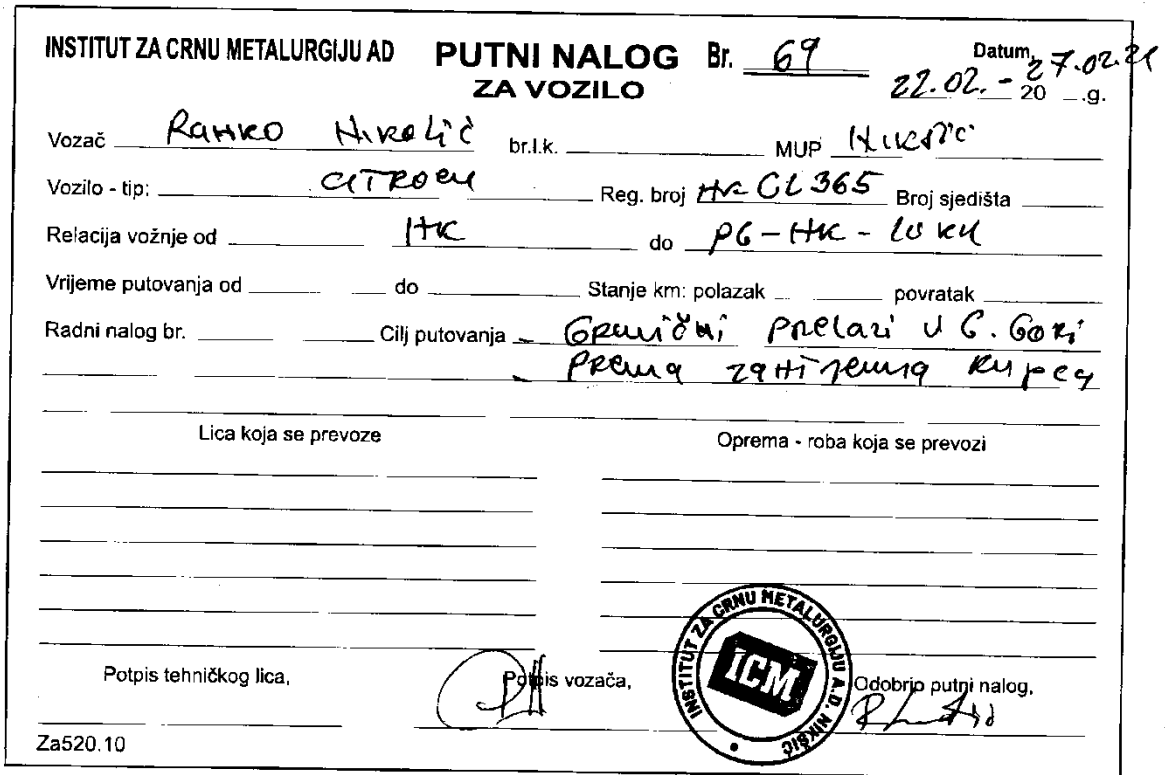 INSTITUT ZA CRNU METALURGIJU AD PUTNI NALOG Br. 69 Datum, 22.02. - 27.02.21
ZA VOZILO 20 .g.
Vozač Ranko Nikolić br.l.k. MUP Nikšić
Vozilo - tip: CITROEN Reg. broj NK CL 365 Broj sjedišta
Relacija vožnje od NK do PG-NK-
Vrijeme putovanja od do Stanje km: polazak povratak
Radni nalog br. Cilj putovanja Granični prelazi u C. Gori
prema zahtjevima kupca
Lica koja se prevoze Oprema - roba koja se prevozi
INSTITUT ZA CRNU METALURGIJU A.D. NIKŠIĆ
ICM
Potpis tehničkog lica, Potpis vozača, Odobrio putni nalog,
Za520.10